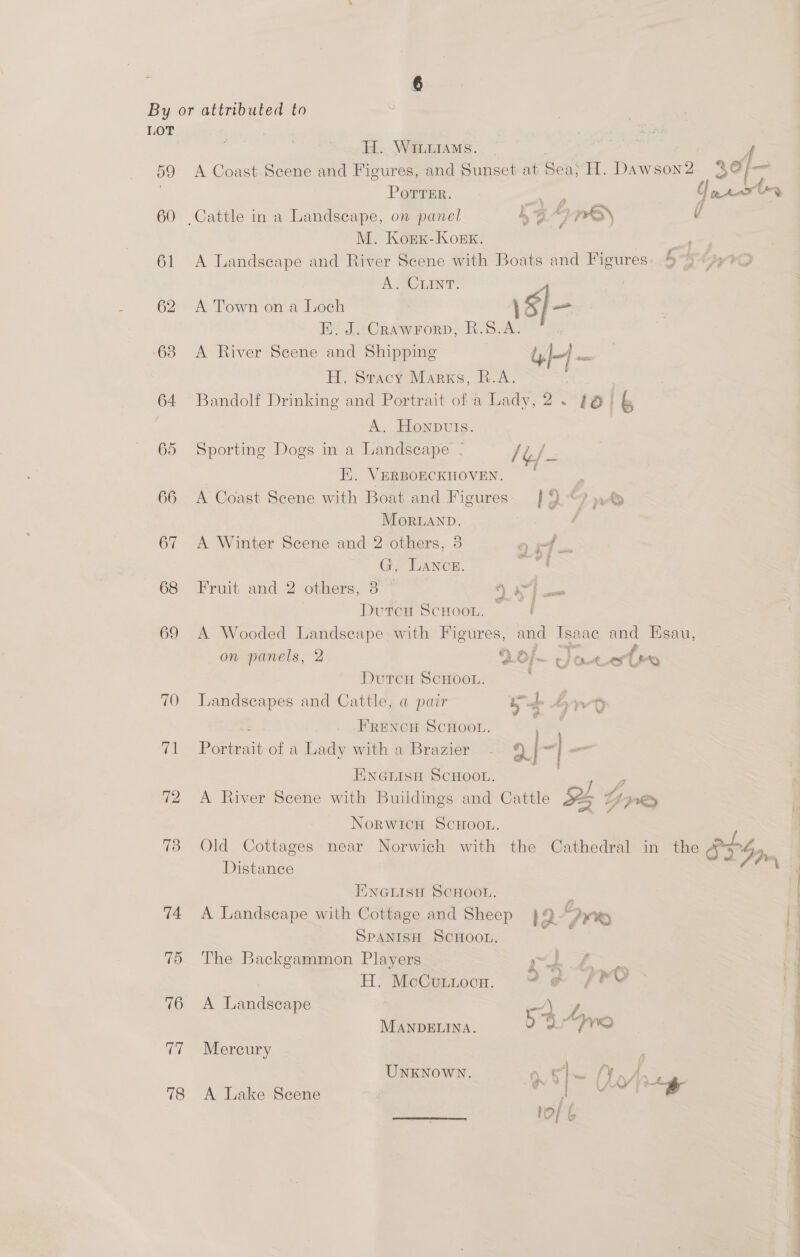 6
By or attributed to
LOT
H. WILLIAMS.
59 A Coast Scene and Figures, and Sunset at Sea; H. Dawson2 30/-
POTTER.
60 Cattle in a Landscape, on panel
M. KOEK-KOEK.
61 A Landscape and River Scene with Boats and Figures
A. CLINT.
62 A Town on a Loch 18/-
E. J. CRAWFORD, R.S.A.
63 A River Scene and Shipping
H. STACY MARKS, R.A.
64 Bandolf Drinking and Portrait of a Lady, 2 10/6
A. HONDUIS.
65 Sporting Dogs in a Landscape 14/-
E. VERBOECKHOVEN.
66 A Coast Scene with Boat and Figures
MORLAND.
67 A Winter Scene and 2 others, 3 25/-
G. LANCE.
68 Fruit and 2 others, 3 25/-
DUTCH SCHOOL.
69 A Wooded Landscape with Figures, and Isaac and Esau,
on panels, 2 20/-
DUTCH SCHOOL.
70 Landscapes and Cattle, a pair
FRENCH SCHOOL.
71 Portrait of a Lady with a Brazier
ENGLISH SCHOOL.
72 A River Scene with Buildings and Cattle
NORWICH SCHOOL.
73 Old Cottages near Norwich with the Cathedral in the
Distance
ENGLISH SCHOOL.
74 A Landscape with Cottage and Sheep
SPANISH SCHOOL.
75 The Backgammon Players
H. McCULLOCH.
76 A Landscape
MANDELINA.
77 Mercury
UNKNOWN.
78 A Lake Scene
10/6